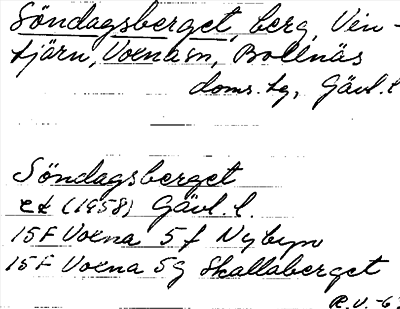 Söndagsberget, berg, Vin-
tjärn, Voxna sn, Bollnäs
doms.tg, Gävl. l
Söndagsberget
ek (1958) Gävl. l.
15F Voxna 5 f Nybyn
15F Voxna 5g Skallaberget
R.V. -6